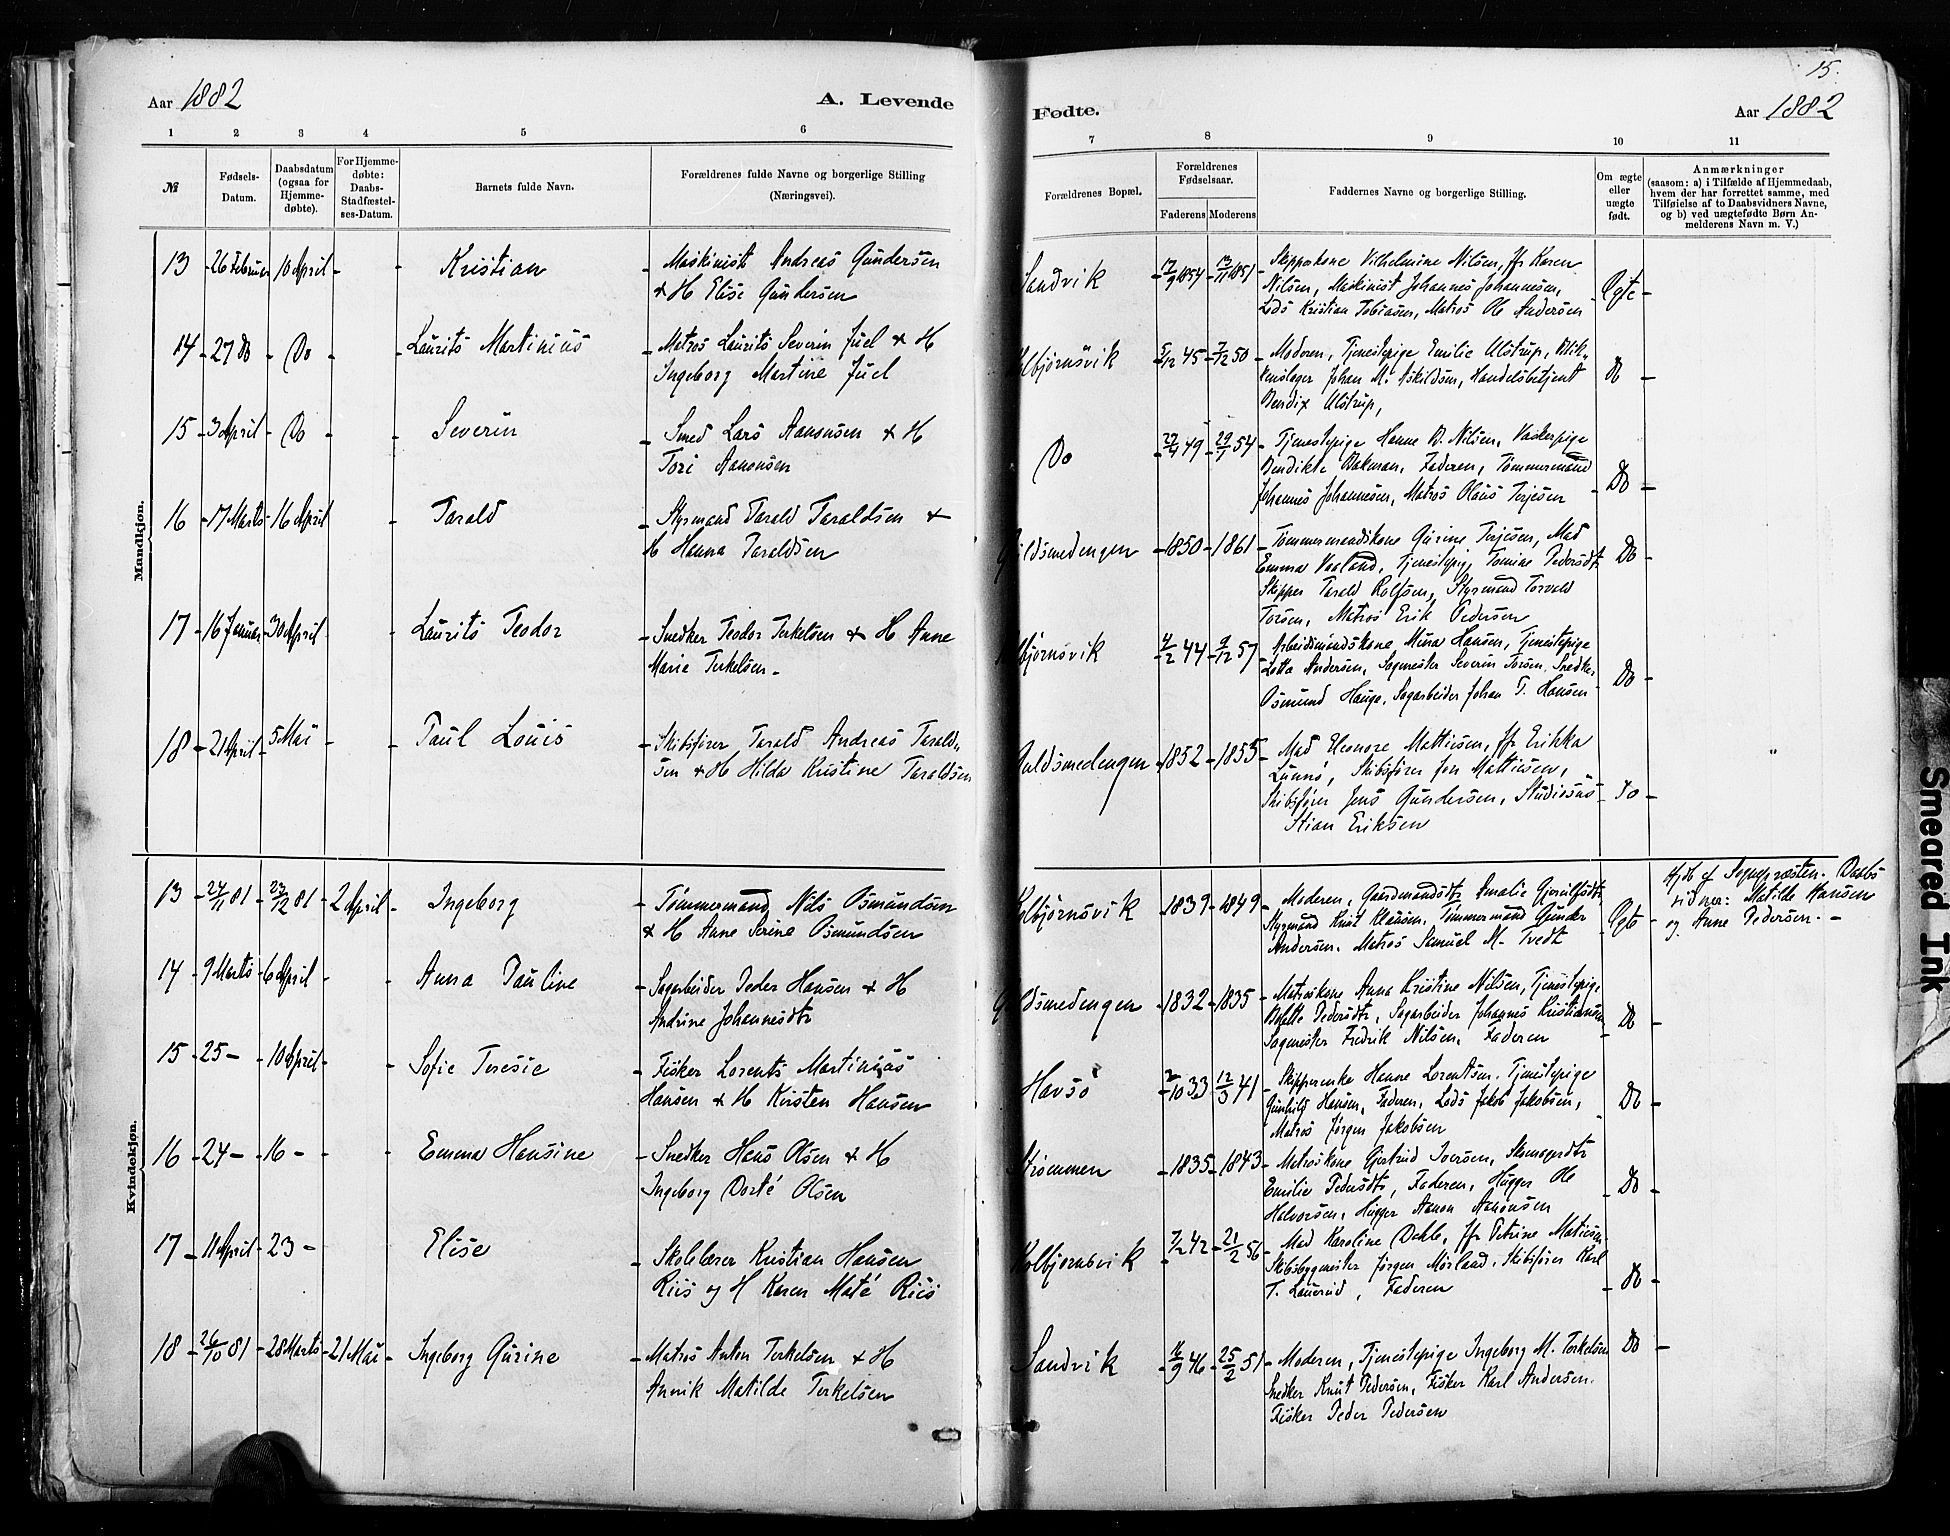 15.
Aar 1882
A. Levende
Fødte.
Aar 1882
1 2 3 4 5 6
7 8 9 10 11
№
Fødsels-
Datum.
Daabsdatum
(ogsaa for
Hjemme-
døbte).
For Hjemme-
døbte:
Daabs-
Stadfæstel-
ses-Datum.
Barnets fulde Navn.
Forældrenes fulde Navne og borgerlige Stilling
(Næringsvei).
Forældrenes Bopæl.
Forældrenes
Fødselsaar.
Faderens Moderens
Faddernes Navne og borgerlige Stilling.
Om ægte
eller
uægte
født.
Anmærkninger
(saasom: a) i Tilfælde af Hjemmedaab,
hvem der har forrettet samme, med
Tilføielse af to Daabsvidners Navne,
og b) ved uægtefødte Børn An-
melderens Navn m. V.)
Mandkjøn.
13 - 26 Februar 10 April - - Kristian - Maskinist Andreas Gundersen
& H Elise Gundersen
Sandvik - 17/9 1854 - 13/11 1851 - Skipperkone Vilhelmine Nilsen, Jfr Karen
Nilsen, Maskinist Johannes Johannesen,
Lods Kristian Tobiasen, Matros Ole Andersen - Ægte -
14 - 27 Do - Do - - Laurits Martinius - Matros Laurits Severin Juel & H
Ingeborg Martine Juel
Kolbjørnsvik - 5/12 45 - 7/12 50 - Moderen, Tjenestepige Emilie Ulstrup, Blik-
kenslager Johan M. Askildsen, Handelsbetjent
Bendix Ulstrup, Do -
15 - 3 April - Do - - Severin - Smed Lars Aanonsen & H
Tori Aanonsen
Do - 49 - 29/1 54 - Tjenestepige Hanne B. Nilsen, Vaskerpige
Bendikte Bakman, Faderen, Tømmermand
Johannes Johannesen, Matros Olaus Terjesen - Do -
16 - 17 Marts - 16 April - Tarald - Styrmand Tarald Taraldsen &
H Hanna Taraldsen
Guldsmedengen - 1850 - 1861 - Tømmermandskone Gurine Terjesen, Mad
Emma Vaaland, Tjenestepige Tomine Pedersdtr
Skipper Tarald Rolfsen, Styrmand Torvald
Torsen, Matros Erik Pedersen - Do -
17 - 16 Januar - 30 April - Laurits Teodor - Snedker Teodor Terkelsen & H Anne
Marie Terkelsen -
Kolbjørnsvik 4/2 44 - 9/12 57 - Arbeidsmandskone Mina Hansen, Tjenestepige
Lotta Andersen, Sagmester Severin Torsen, Snedker
Osmund Hauge, Sagarbeider Johan T. Hansen - Do -
18 - 21 April - 5 Mai - - Paul Louis - Skibsfører Tarald Andreas Tarald-
sen & H Hilda Kristine Taraldsen
Guldsmedengen - 1852 - 1855 - Mad Eleonore Mattiesen, Jfr Erikka
Lunnø, Skibsfører Jon Mattiesen,
Skibsfører Jens Gundersen, Studiosus
Stian Eriksen - Do -
Kvindekjøn.
13 - 24/11 81 - 23/12 81 - 2 April - Ingeborg - Tømmermand Nils Osmundsen
& H Anne Serine Osmundsen
Kolbjørnsvik - 1839 - 1849 - Moderen, Gaardmandsdtr Amalie
Styrmand Knut Klausen, Tømmermand Gunder
Andersen, Matros Samuel M. Tvedt - Ægte -
Hjdb af Sognepræsten. Daabs
vidner: Matilde Hansen
og Anne Pedersen. -
14 - 9 Marts - 6 April - - Anna Pauline - Sagarbeider Peder Hansen & H
Andrine Johannesdtr
Guldsmedengen - 1832 - 1835 - Matroskone Anna Kristine Nilsen, Tjenestepige
Bolette Pedersdtr, Sagarbeider Johannes Kristiansen
Sagmester Fredrik Nilsen, Faderen - Do -
15 - 25 - - 10 April - - Sofie Teresie - Fisker Lorents Martinius
Hansen & H Kirsten Hansen
Havsö 2/10 33 - 12/3 41 - Skipperenke Hanne Lorentsen, Tjenestepige
Gunhild Hansen, Faderen, Lods Jakob Jakobsen,
Matros Jørgen Jakobsen - Do -
16 - 24 - - 16 - - - Emma Hansine - Snedker Hans Olsen & H
Ingeborg Dorté Olsen
Strømmen - 1835 - 1843 - Matroskone Gjertrud Iversen,
Emilie Pedersdtr, Faderen, Hugger Ole
Halvorsen, Hugger Aanon Aanonsen - Do -
17 - 11 April - 23 - Elise - Skolelærer Kristian Hansen
Riis og H Karen Maté Riis
Kolbjørnsvik - 7/2 42 - 21/2 56 - Mad Karoline Dahle, Jfr Petrine Matiesen,
Skibsbygmester Jørgen Mørland, Skibsfører Karl
T. Laurrid, Faderen - Do -
18 - 26/10 81 - 28 Marts - 21 Mai - Ingeborg Gurine - Matros Anton Terkelsen & H
Annik Matilde Terkelsen
Sandvik - 16/9 46 - 25/2 51 - Moderen, Tjenestepige Ingeborg M. Terkelsen
Snedker Knut Pedersen, Fisker Karl Andersen.
Fisker Peder Pedersen Do -
Smeared Ink